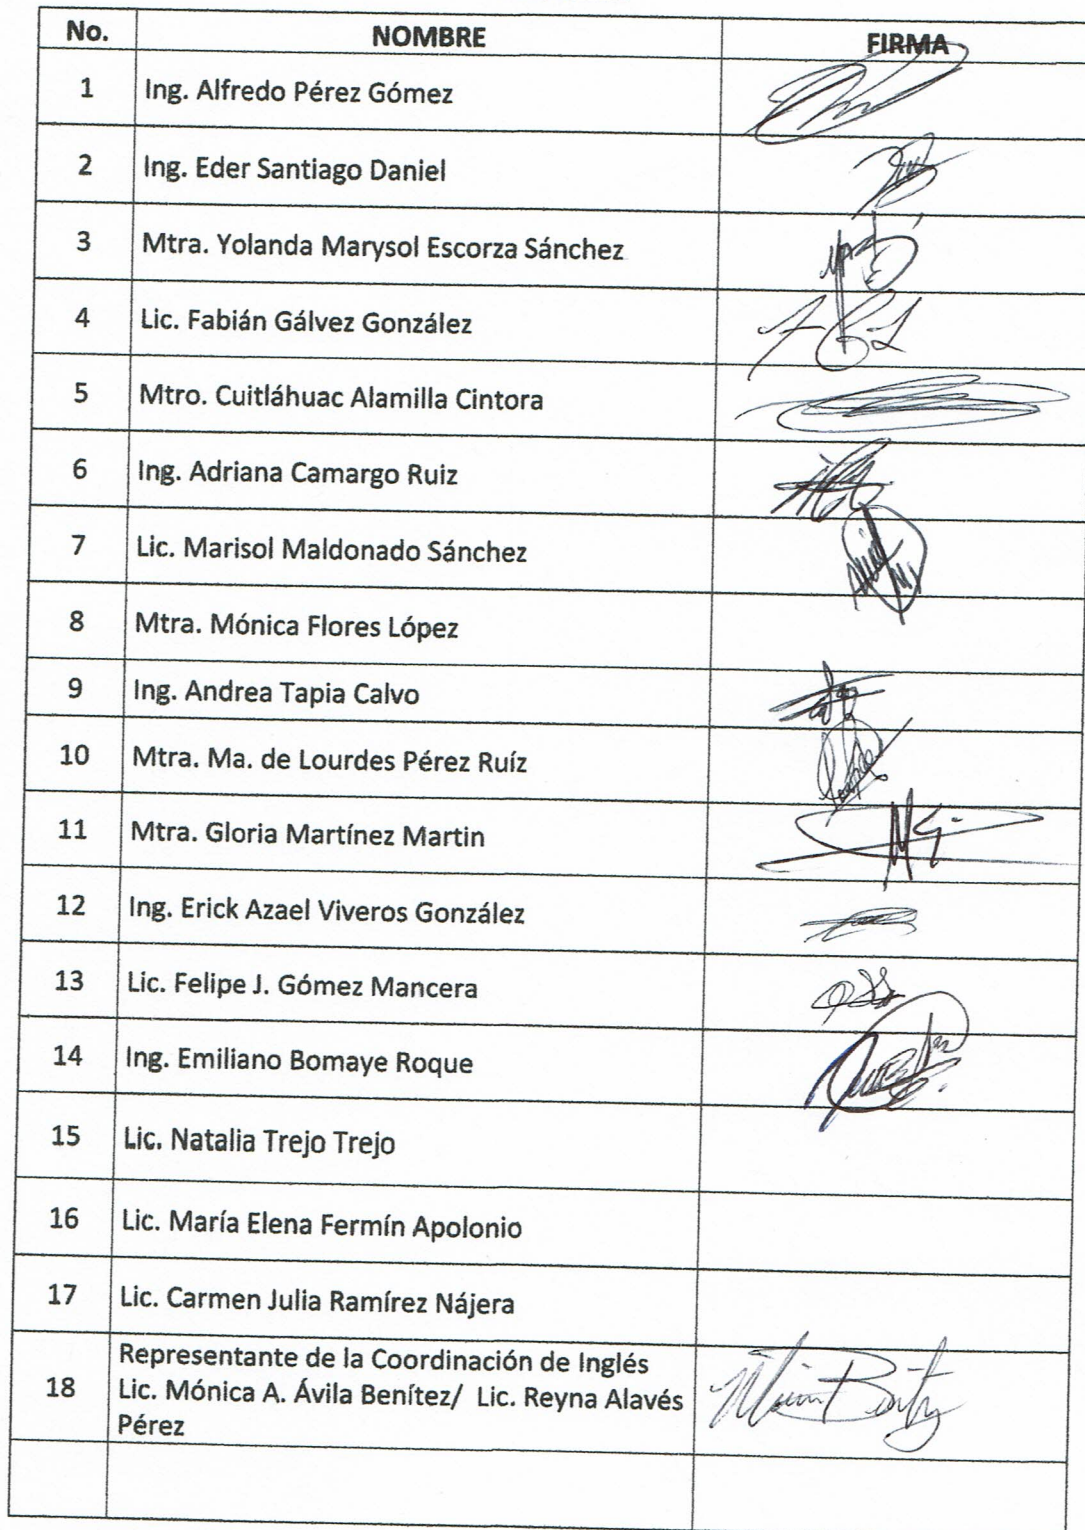 No. NOMBRE FIRMA
1 Ing. Alfredo Pérez Gómez
2 Ing. Eder Santiago Daniel
3 Mtra. Yolanda Marysol Escorza Sánchez
4 Lic. Fabián Gálvez González
5 Mtro. Cuitláhuac Alamilla Cintora
6 Ing. Adriana Camargo Ruiz
7 Lic. Marisol Maldonado Sánchez
8 Mtra. Mónica Flores López
9 Ing. Andrea Tapia Calvo
10 Mtra. Ma. de Lourdes Pérez Ruíz
11 Mtra. Gloria Martínez Martin
12 Ing. Erick Azael Viveros González
13 Lic. Felipe J. Gómez Mancera
14 Ing. Emiliano Bomaye Roque
15 Lic. Natalia Trejo Trejo
16 Lic. María Elena Fermín Apolonio
17 Lic. Carmen Julia Ramírez Nájera
Representante de la Coordinación de Inglés
18 Lic. Mónica A. Ávila Benítez/ Lic. Reyna Alavés
Pérez